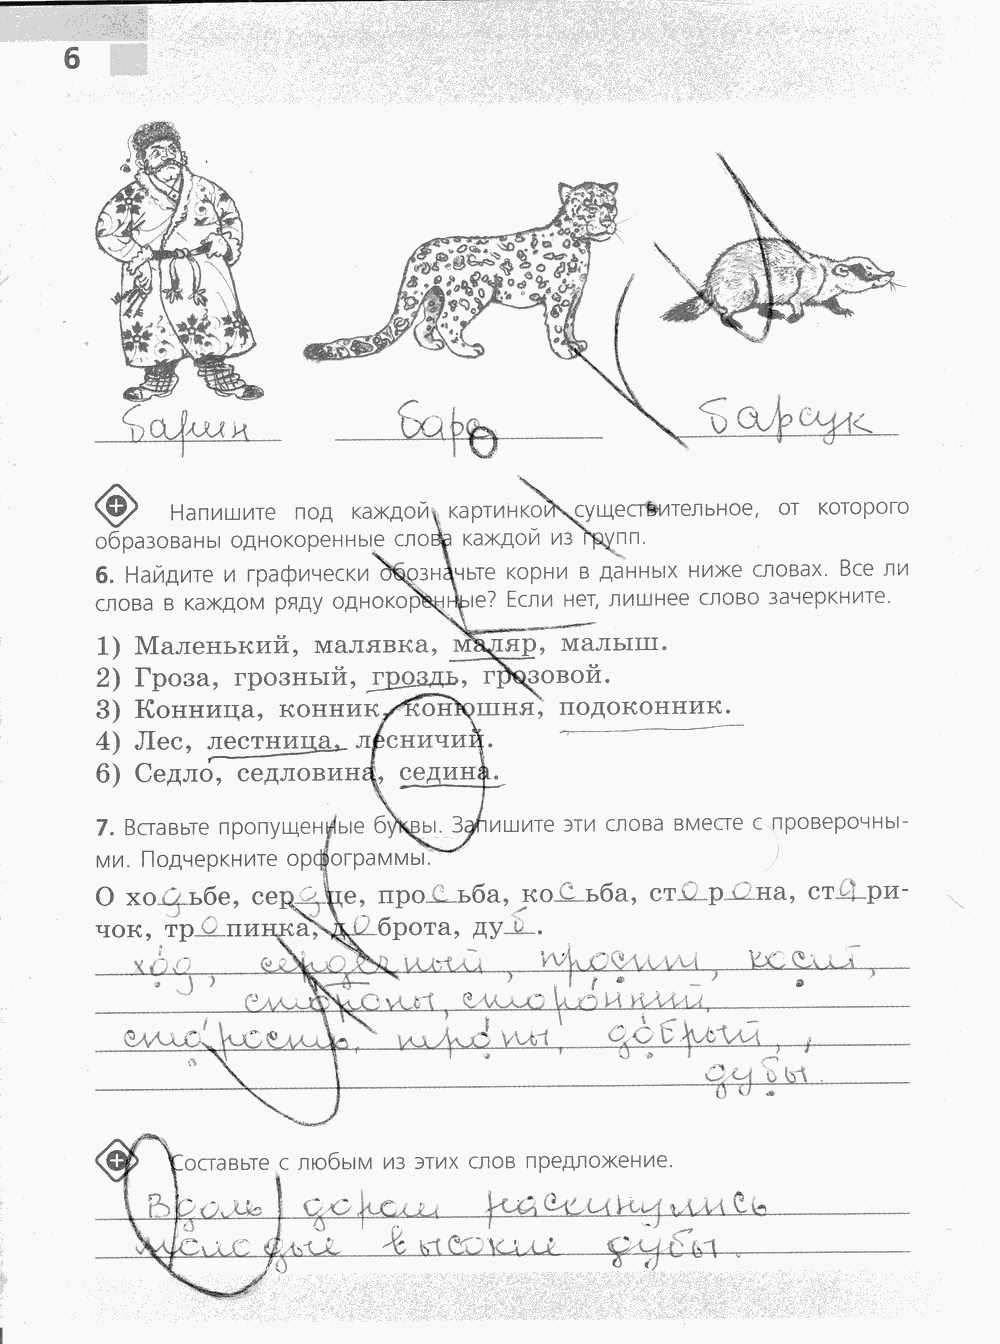 6
барин барс барсук
Напишите под каждой картинкой существительное, от которого
образованы однокоренные слова каждой из групп.
6. Найдите и графически обозначьте корни в данных ниже словах. Все ли
слова в каждом ряду однокоренные? Если нет, лишнее слово зачеркните.
1) Маленький, малявка, маляр, малыш.
2) Гроза, грозный, гроздь, грозовой.
3) Конница, конник, конюшня, подоконник.
4) Лес, лестница, лесничий.
6) Седло, седловина, седина.
7. Вставьте пропущенные буквы. Запишите эти слова вместе с проверочны-
ми. Подчеркните орфограммы.
О ходьбе, сердце, просьба, косьба, сторона, стари-
чок, тропинка, доброта, дуб.
ход, сердечный, просит, косит,
стороны, сторонний,
старость, тропы, добрый,
дубы.
Составьте с любым из этих слов предложение.
Вдоль дороги раскинулись
молодые высокие дубы.